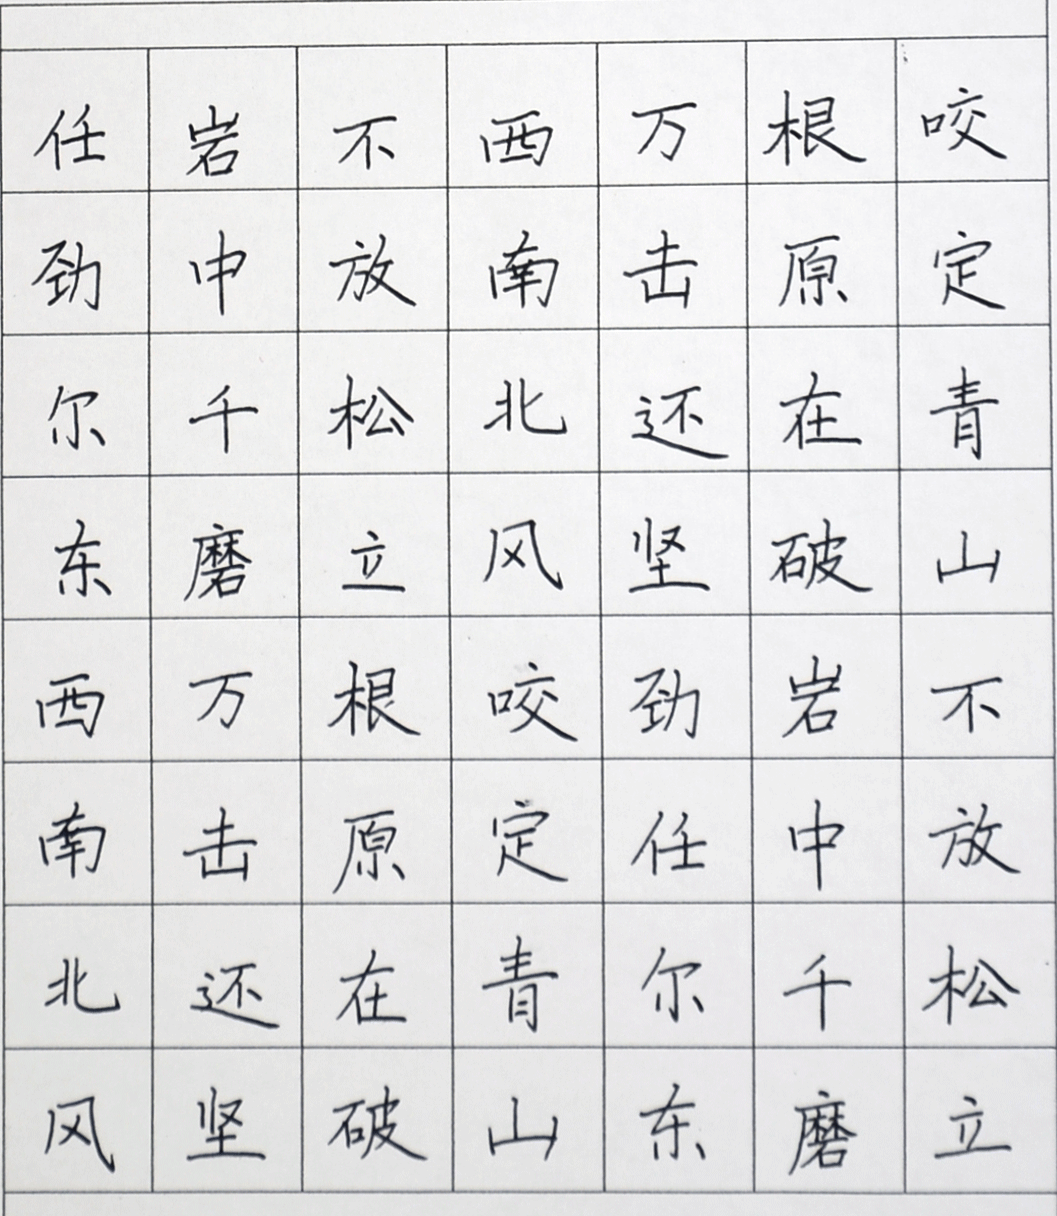 咬定青山不放松立
根原在破岩中千磨
万击还坚劲任尔东
西南北风咬定青山
不放松立根原在破
岩中千磨万击还坚
任劲尔东西南北风